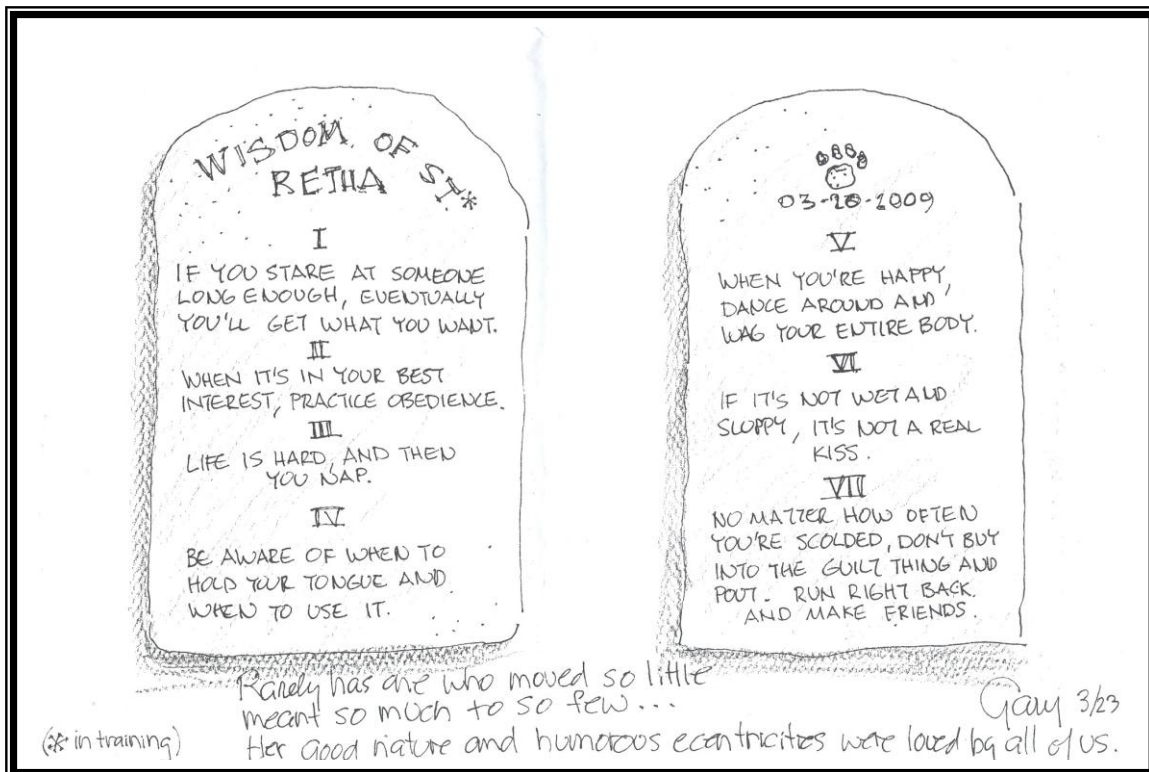 WISDOM OF ST.*
RETHA
I
IF YOU STARE AT SOMEONE
LONG ENOUGH, EVENTUALLY
YOU'LL GET WHAT YOU WANT.
II
WHEN IT'S IN YOUR BEST
INTEREST, PRACTICE OBEDIENCE.
III
LIFE IS HARD, AND THEN
YOU NAP.
IV
BE AWARE OF WHEN TO
HOLD YOUR TONGUE AND
WHEN TO USE IT.
03-20-2009
V
WHEN YOU'RE HAPPY,
DANCE AROUND AND
WAG YOUR ENTIRE BODY.
VI
IF IT'S NOT WET AND
SLOPPY, IT'S NOT A REAL
KISS.
VII
NO MATTER HOW OFTEN
YOU'RE SCOLDED, DON'T BUY
INTO THE GUILT THING AND
POUT. RUN RIGHT BACK
AND MAKE FRIENDS.
Rarely has one who moved so little
meant so much to so few...
Her good nature and humorous eccentricities were loved by all of us.
Gary 3/23
(* in training)